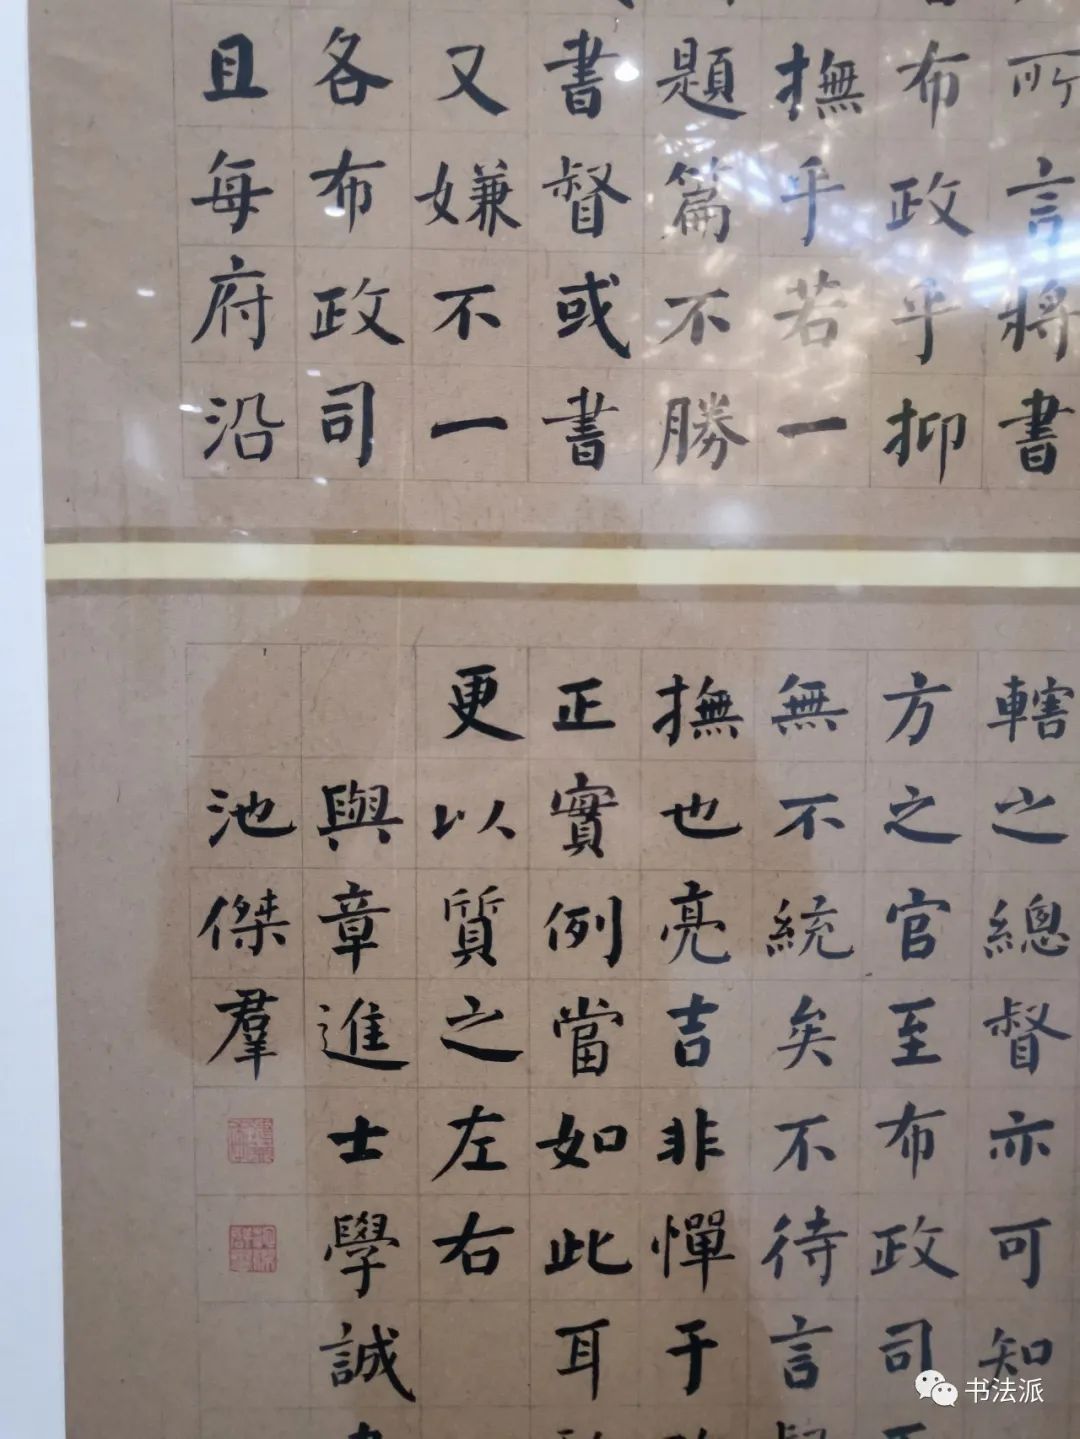 所言將書
布政乎抑
撫乎若一
題篇不勝
書督或書
又嫌不一
各布政司
且每府沿
轄之總督亦可知
方之官至布政司
無不統矣不待言
撫也亮吉非憚于
正實例當如此耳
更以質之左右
與章進士學誠
池傑羣
书法派